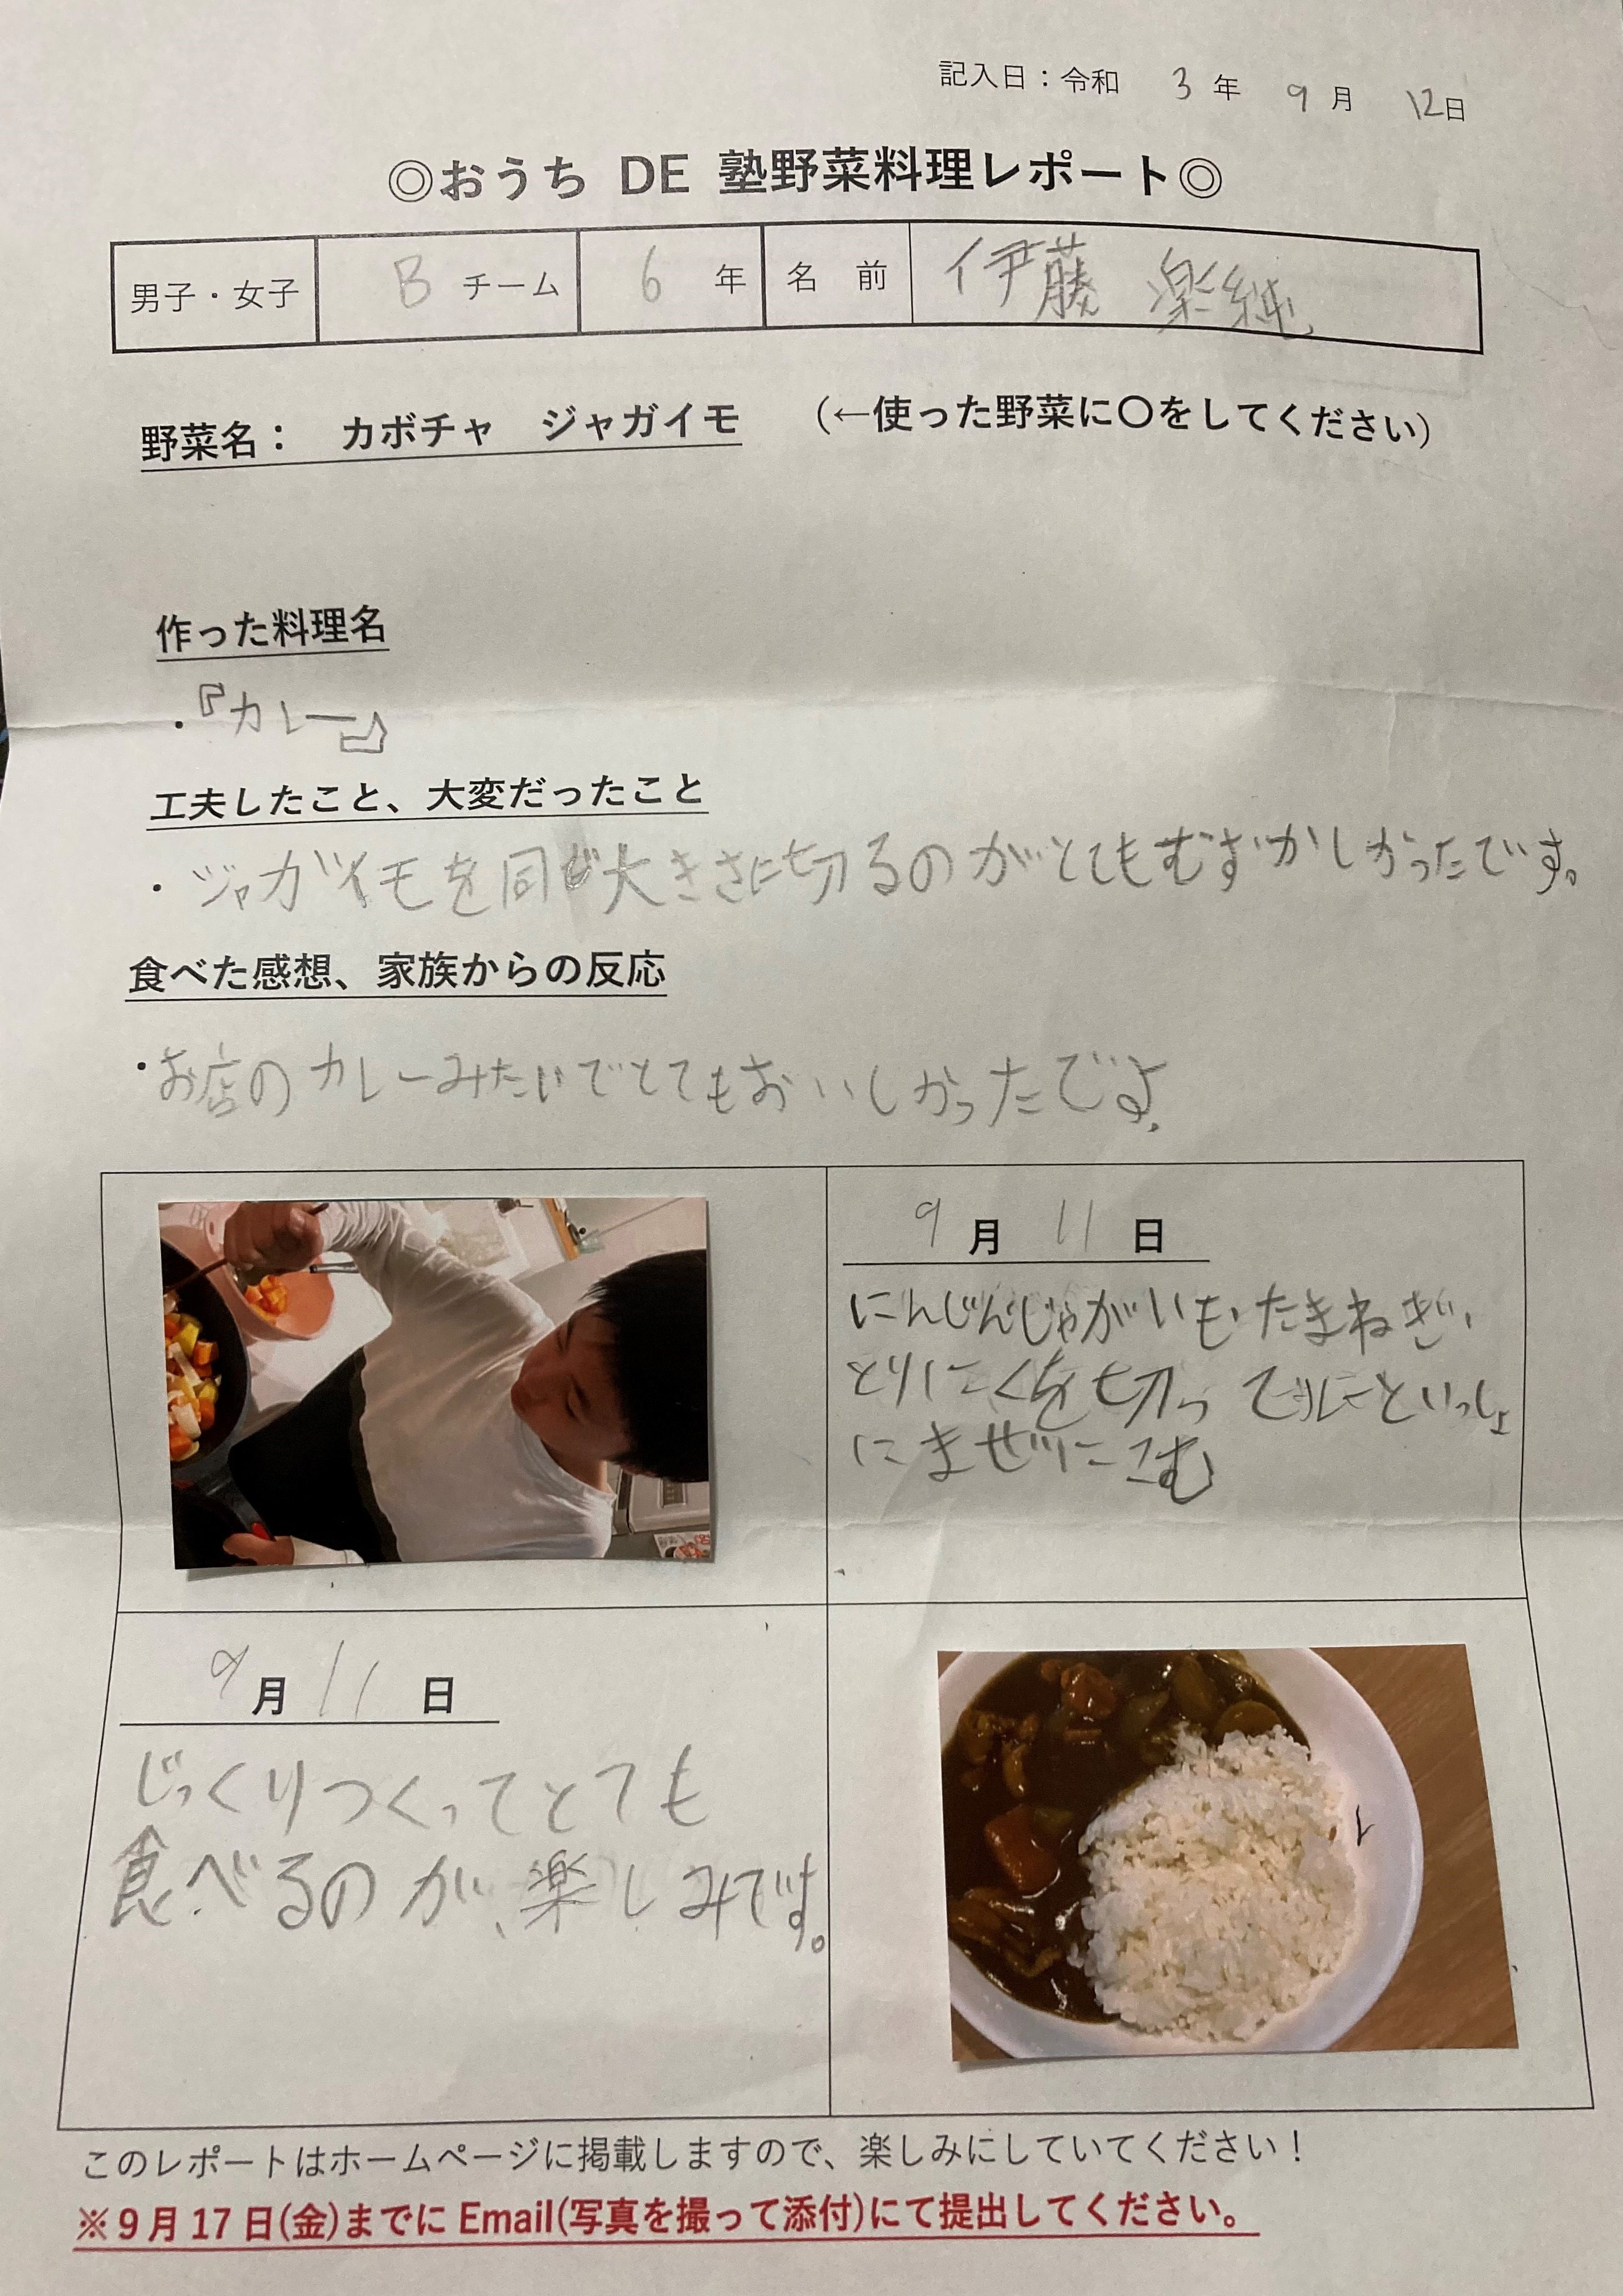 記入日：令和 3 年 9 月 12日
◎おうち DE 塾野菜料理レポート◎
男子・女子 B チーム 6 年 名 前 伊藤 楽純
野菜名： カボチャ ジャガイモ （←使った野菜に〇をしてください）
作った料理名
・『カレー』
工夫したこと、大変だったこと
・ジャガイモを同じ大きさに切るのがとてもむずかしかったです。
食べた感想、家族からの反応
・お店のカレーみたいでとてもおいしかったです。
9 月 11 日
にんじんじゃがいも・たまねぎ・
とりにくを切って
にまぜにこむ
9 月 11 日
じっくりつくってとても
食べるのが、楽しみです。
このレポートはホームページに掲載しますので、楽しみにしていてください！
※9 月 17 日(金)までに Email(写真を撮って添付)にて提出してください。